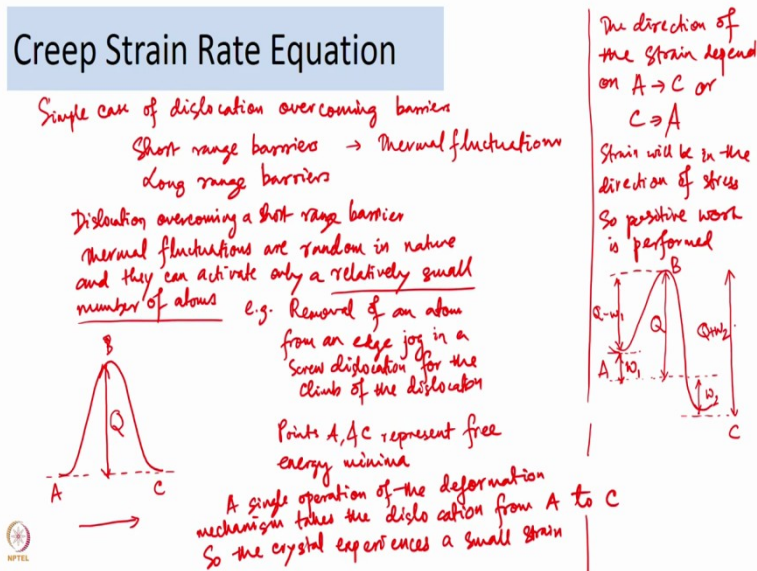 Creep Strain Rate Equation
Simple case of dislocation overcoming barriers
Short range barriers → Thermal fluctuations
Long range barriers
Dislocation overcoming a short range barrier
Thermal fluctuations are random in nature
and they can activate only a relatively small
number of atoms
e.g. Removal of an atom
from an edge jog in a
screw dislocation for the
climb of the dislocation
B
Q
A
C
Points A, & C represent free
energy minima
A single operation of the deformation
mechanism takes the dislocation from A to C
So the crystal experiences a small strain
The direction of
the strain depend
on A → C or
C → A
Strain will be in the
direction of stress
So positive work
is performed
B
Q-w1
Q
Q+w2
A
w1
w2
C
NPTEL